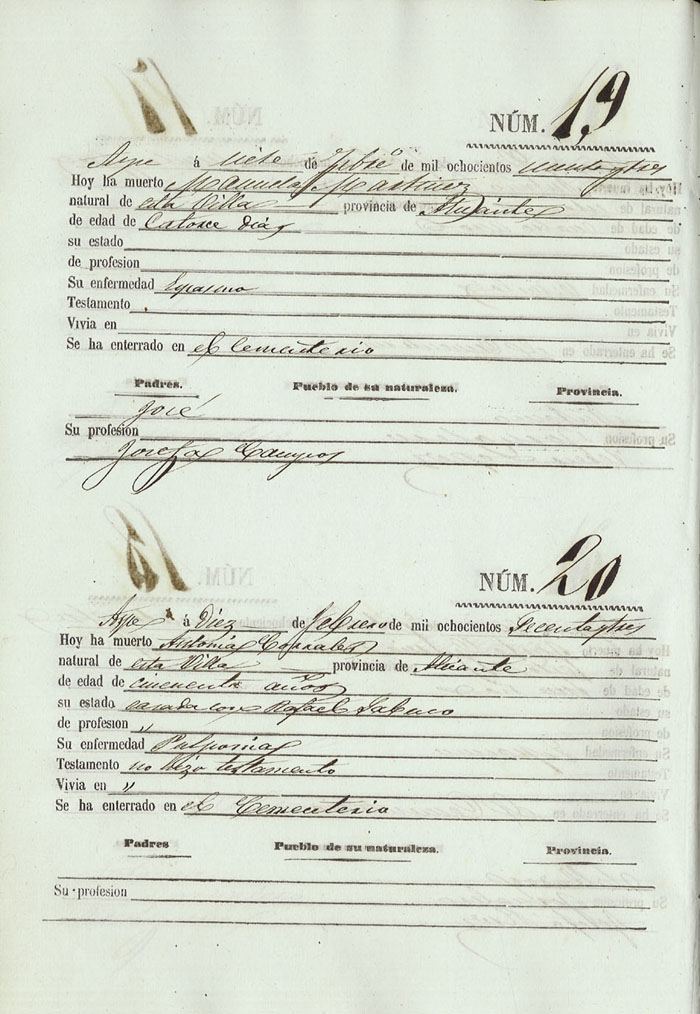 NÚM. 19
Aspe á siete de Febº de mil ochocientos
Hoy ha muerto Manuela Martinez
natural de esta Villa provincia de Alicante
de edad de Catorce dias
su estado
de profesion
Su enfermedad Espasmo
Testamento
Vivia en
Se ha enterrado en el Cementerio
Padres. Pueblo de su naturaleza. Provincia.
José
Su profesion
Josefa Campos
NÚM. 20
Aspe á Diez de Febrero de mil ochocientos
Hoy ha muerto Antonia Corrales
natural de esta Villa provincia de Alicante
de edad de cincuenta años
su estado casada con Rafael
de profesion "
Su enfermedad Pulmonia
Testamento no hizo testamento
Vivia en "
Se ha enterrado en el Cementerio
Padres Pueblo de su naturaleza. Provincia.
Su profesion